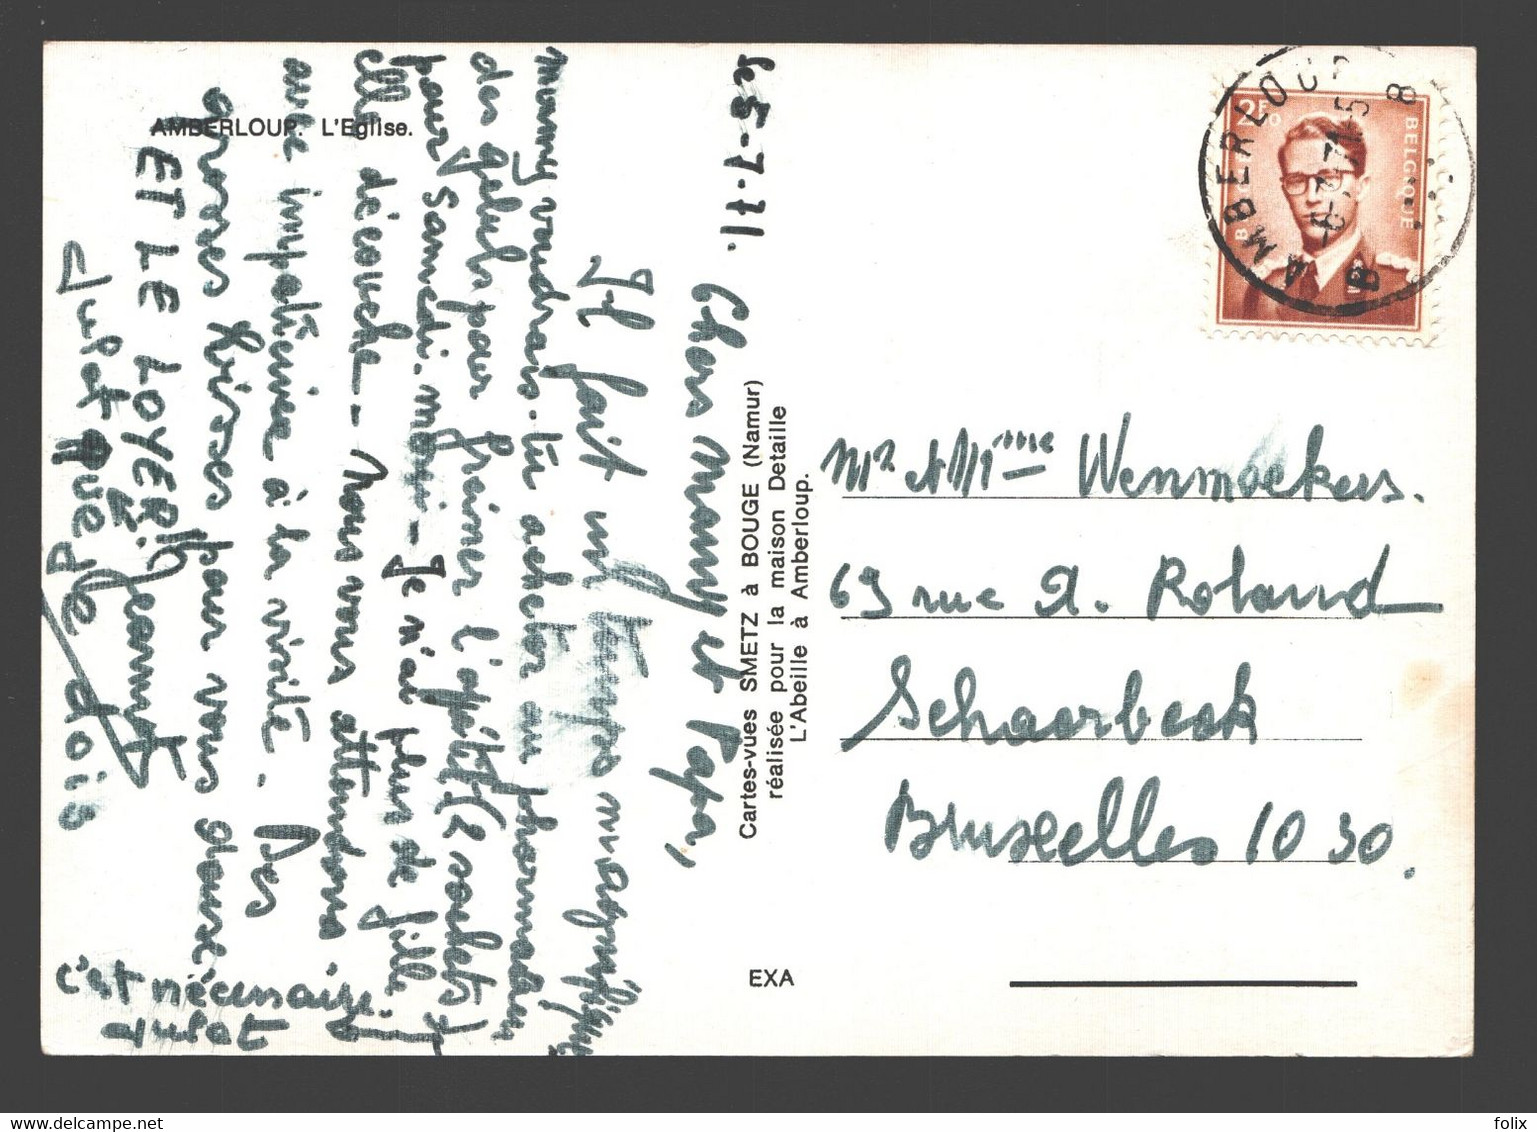 AMBERLOUP. L'Eglise.
le 5-7-71.
Chers Mamy et Papa,
Il fait un temps magnifique
mamy voudrais-tu acheter au pharmacien
des gelules pour freiner l'appétit (2 ) 
pour samedi. merci - Je n'ai plus de fille
elle découche - Nous vous attendons
avec impatience à la visite. Des
grosses bises pour vous deux.
Jeannot
ET LE LOYER!!
c'est nécessaire!
Cartes-vues SMETZ à BOUGE (Namur)
réalisée pour la maison Detaille
L'Abeille à Amberloup.
EXA
BELGIE
2F50
BELGIQUE
AMBERLOUP
Mr et Mme Wenmoekers.
69 rue A. Roland
Schaerbeek
Bruxelles 1030.
felix
delcampe.net